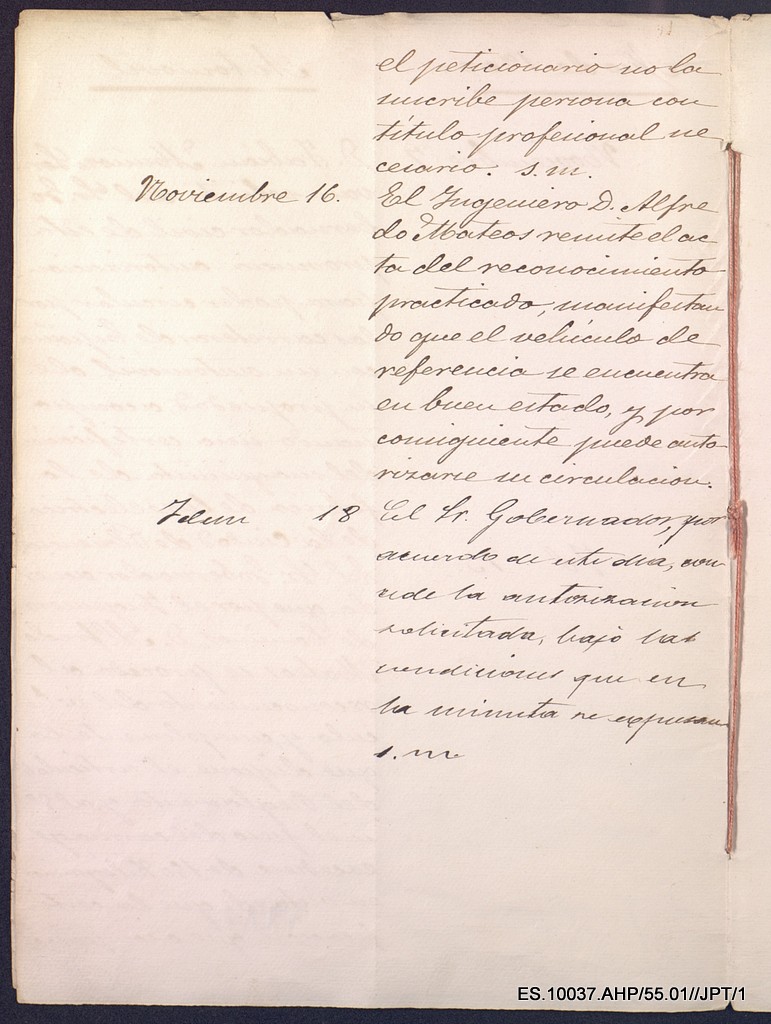 el peticionario no la
suscribe persona con
título profesional ne
cesario. s.m.
Noviembre 16. El Ingeniero D. Alfre
do Mateos remite el ac
ta del reconocimiento
practicado, manifestan
do que el vehículo de
referencia se encuentra
en buen estado, y por
consiguiente puede auto-
rizarse su circulacion.
Idem 18 El Sr. Gobernador, por
acuerdo de este dia, con
cede la autorizacion
solicitada, bajo las
condiciones que en
la minuta se expresan
s.m
ES.10037.AHP/55.01//JPT/1